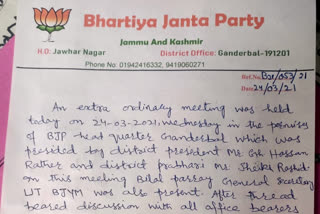 Bhartiya Janta Party
Jammu And Kashmir
H.O. Jawhar Nagar District Office: Ganderbal-191201
Phone No: 01942416332, 9419060271
Ref.No. BJP/053/21
Date 24/03/21
An extra ordinary meeting was held
today on 24-03-2021, wednesday in the premises
of BJP head quarter Ganderbal which was
presided by district president Mr. Gh Hassan
Rather and district prabhari Mr. Sheikh Rashid
on this meeting Bilal parray General Secretary
UT BJYM was also present. After thread
beared discussion with all office bearers